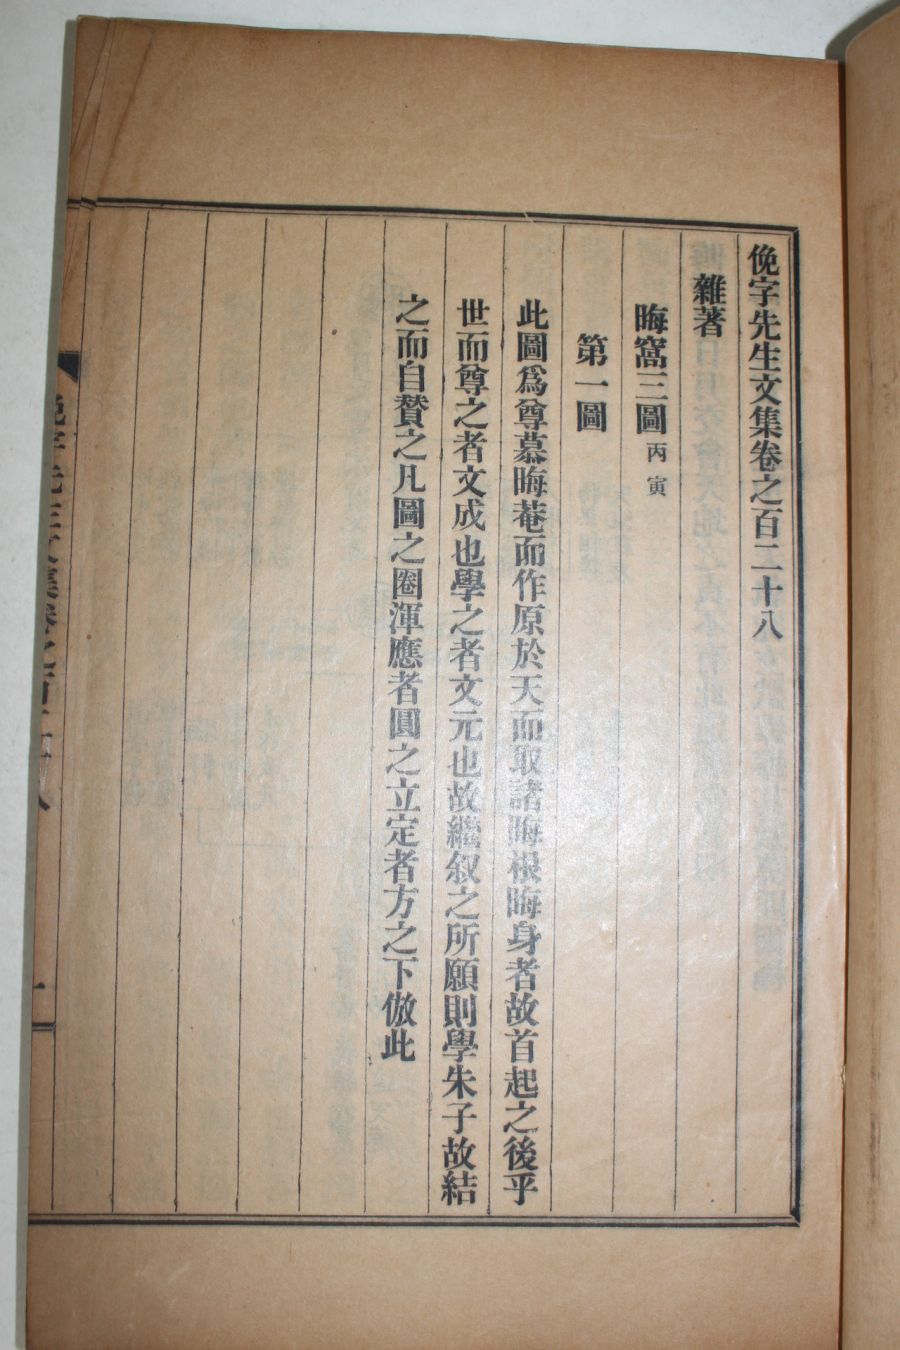 俛宇先生文集卷之百二十八
雜著
晦窩三圖 丙寅
第一圖
此圖爲尊慕晦菴而作原於天而取諸晦根晦身者故首起之後乎
世而尊之者文成也學之者文元也故繼叙之所願則學朱子故結
之而自贊之凡圖之圈渾應者圓之立定者方之下倣此
俛宇先生文集卷之百二十八
一